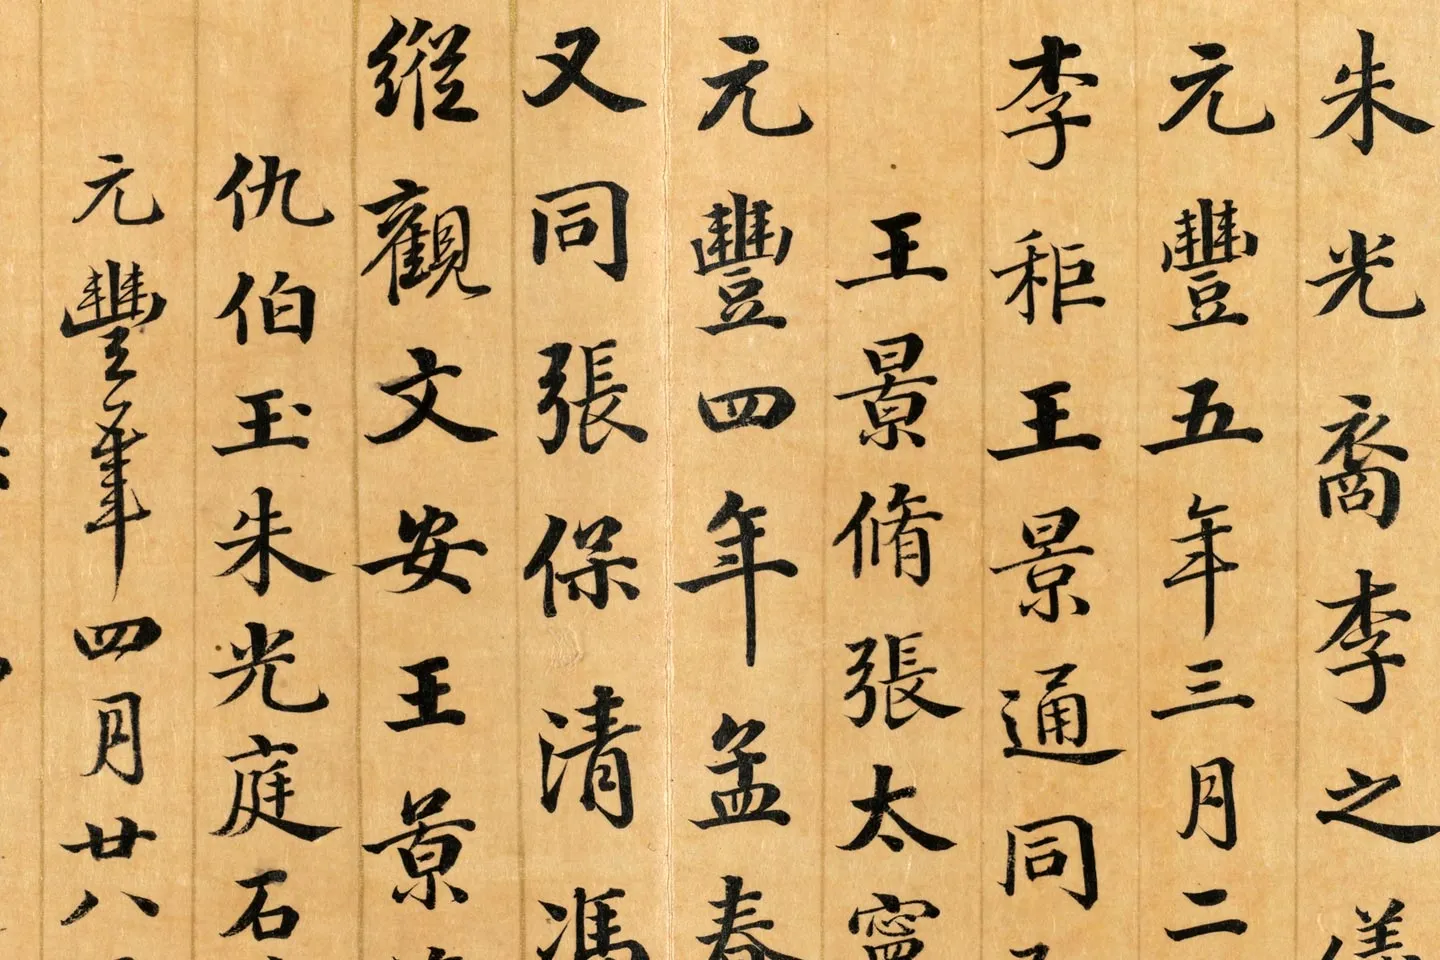 朱光裔李之儀
元豐五年三月二
李秬王景通同
王景脩張太寧
元豐四年孟春
又同張保清馮
縱觀文安王景
仇伯玉朱光庭石
元豐年四月廿八